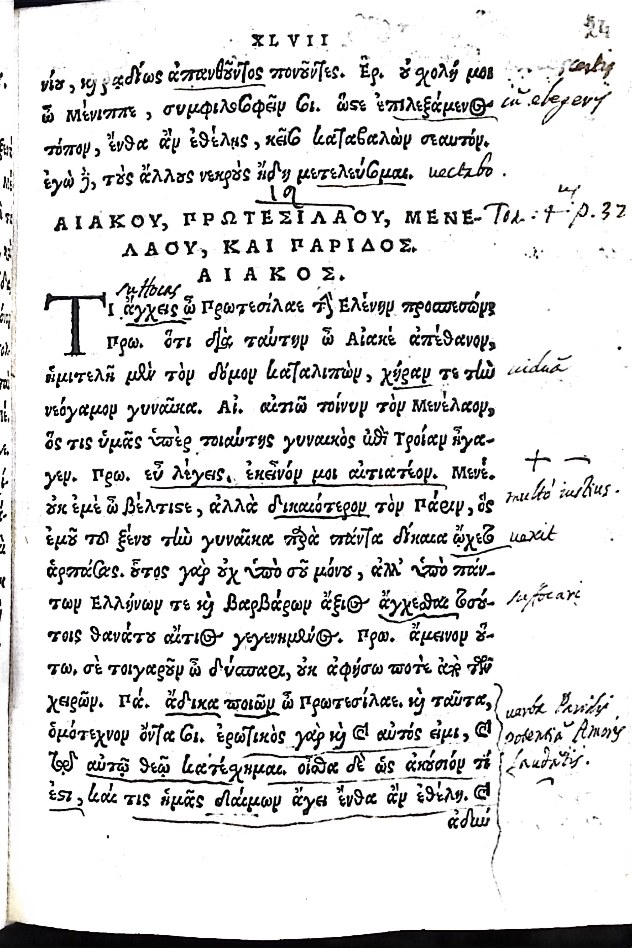 XLVII
νίου, καὶ ῥαδίως ἀπανθοῦντος πονοῦντες. Ερ. οὐ σχολή μοι
ὦ Μένιππε, συμφιλοσοφεῖν σοι. ὥστε ἐπιλεξάμενος
τόπον, ἔνθα ἂν ἐθέλῃς, κεῖσο καταβαλὼν σεαυτόν.
ἐγὼ δὲ, τοὺς ἄλλους νεκροὺς ἤδη μετελεύσομαι. uectabo.
19
ΑΙΑΚΟΥ, ΠΡΩΤΕΣΙΛΑΟΥ, ΜΕΝΕ- p. 32
ΛΑΟΥ, ΚΑΙ ΠΑΡΙΔΟΣ.
ΑΙΑΚΟΣ.
suffocas
ΤΙ ἄγχεις ὦ Πρωτεσίλαε τὴν Ελένην προσπεσών;
Πρω. ὅτι διὰ ταύτην ὦ Αἰακὲ ἀπέθανον,
ἡμιτελῆ μὲν τὸν δόμον καταλιπὼν, χήραν τε τὴν uiduā
νεόγαμον γυναῖκα. Αἰ. αἰτιῶ τοίνυν τὸν Μενέλαον,
ὅς τις ὑμᾶς ὑπὲρ τοιαύτης γυναικὸς ἐπὶ Τροίαν ἤγα-
γεν. Πρω. εὖ λέγεις. ἐκεῖνόν μοι αἰτιατέον. Μενέ.
οὐκ ἐμὲ ὦ βέλτιστε, ἀλλὰ δικαιότερον τὸν Πάριν, ὃς multo iustius.
ἐμοῦ τοῦ ξένου τὴν γυναῖκα παρὰ πάντα δίκαια ᾤχετο uexit
ἁρπάσας. οὗτος γὰρ οὐχ ὑπὸ σοῦ μόνου, ἀλλ' ὑπὸ πάν-
των Ελλήνων τε καὶ βαρβάρων ἄξιος ἄγχεσθαι τοσού- suffocari
τοις θανάτου αἴτιος γεγενημένος. Πρω. ἄμεινον οὕ-
τω. σὲ τοιγαροῦν ὦ δύσπαρι, οὐκ ἀφήσω ποτὲ ἀπὸ τῶν
χειρῶν. Πά. ἄδικα ποιῶν ὦ Πρωτεσίλαε. καὶ ταῦτα,
ὁμότεχνον ὄντα σοι. ἐρωτικὸς γὰρ καὶ αὐτός εἰμι, καὶ
τῷ αὐτῷ θεῷ κατέσχημαι. οἶσθα δὲ ὡς ἀκούσιόν τί
ἐστι, καί τις ἡμᾶς δαίμων ἄγει ἔνθα ἂν ἐθέλῃ. καὶ
ἀδύ